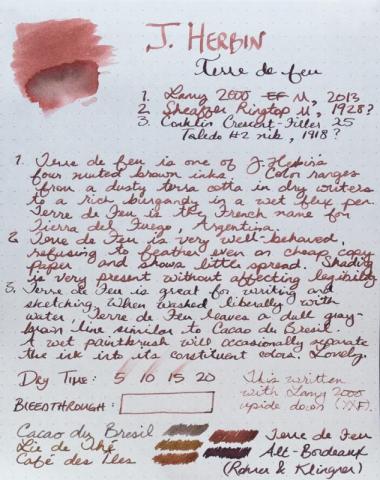 J. HERBIN
Terre de feu
1. Lamy 2000 EF M, 2013
2. Sheaffer Ringtop M, 1928?
3. Conklin Crescent-Filler 25
Toledo #2 nib, 1918?
1. Terre de feu is one of J. Herbin's
four muted brown inks. Color ranges
from a dusty terra cotta in dry writers
to a rich burgandy in a wet flex pen.
Terre de Feu is the French name for
Tierra del Fuego, Argentina.
2. Terre de Feu is very well-behaved,
refusing to feather even on cheap copy
paper and shows little spread. Shading
is very present without affecting legibility.
3. Terre de Feu is great for writing and
sketching. When washed liberally with
water, Terre de Feu leaves a dull gray-
brown line similar to Cacao du Bresil.
A wet paintbrush will occasionally separate
the ink into its constituent colors. Lovely.
DRY TIME: 5 10 15 20
BLEEDTHROUGH:
This written
with Lamy 2000
upside down (XXF).
Cacao du Bresil
Lie de Thé
Café des Iles
Terre de Feu
Alt-Bordeaux
(Rohrer & Klingner)